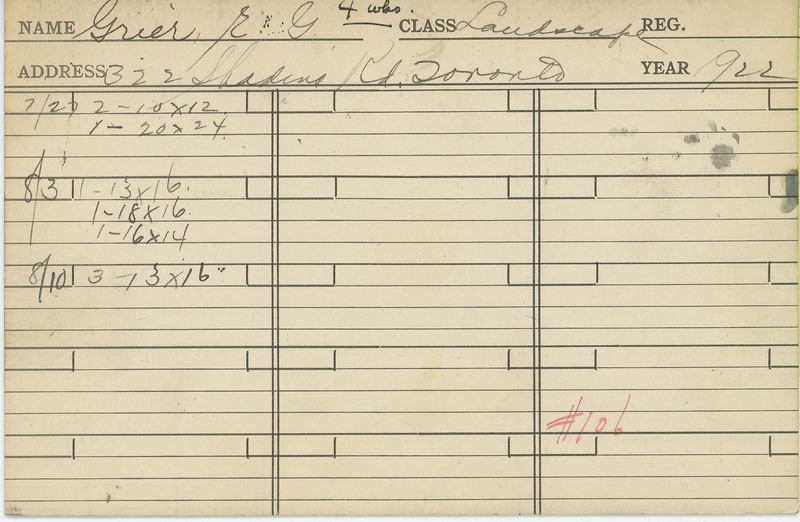 4 wks.
NAME Grier, E G CLASS Landscape REG.
ADDRESS 322 Rd. Toronto YEAR 922
7/27 2-10x12
1-20x24
8/3 1-13x16.
1-18x16.
1-16x14
8/10 3-13x16"
#106